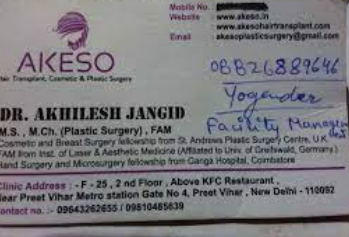 Mobile No.
Website : www.akeso.in
www.akesohairtransplant.com
Email akesoplasticsurgery@gmail.com
AKESO
Hair Transplant, Cosmetic & Plastic Surgery
08826889646
Yogender
Facility Manager
DR. AKHILESH JANGID
M.S. , M.Ch. (Plastic Surgery) , FAM
Cosmetic and Breast Surgery fellowship from St. Andrews Plastic Surgery Centre, U.K.
FAM from Inst. of Laser & Aesthetic Medicine (Affiliated to Univ. of Greifswald, Germany.)
Hand Surgery and Microsurgery fellowship from Ganga Hospital, Coimbatore
Clinic Address : - F - 25 , 2 nd Floor , Above KFC Restaurant ,
Near Preet Vihar Metro station Gate No 4, Preet Vihar , New Delhi - 110092
Contact no. :- 09643262655 / 09810465639